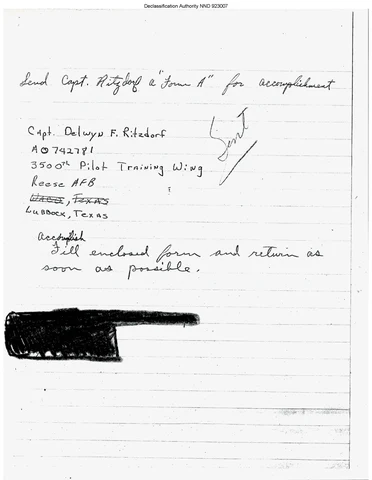 Declassification Authority NND 923007
Send Capt. Ritzdorf a "Form A" for accomplishment
Sent
Capt. Delwyn F. Ritzdorf
AO 742781
3500th Pilot Training Wing
Reese AFB
Waco, Texas
Lubbock, Texas
accomplish
Fill enclosed form and return as
soon as possible.